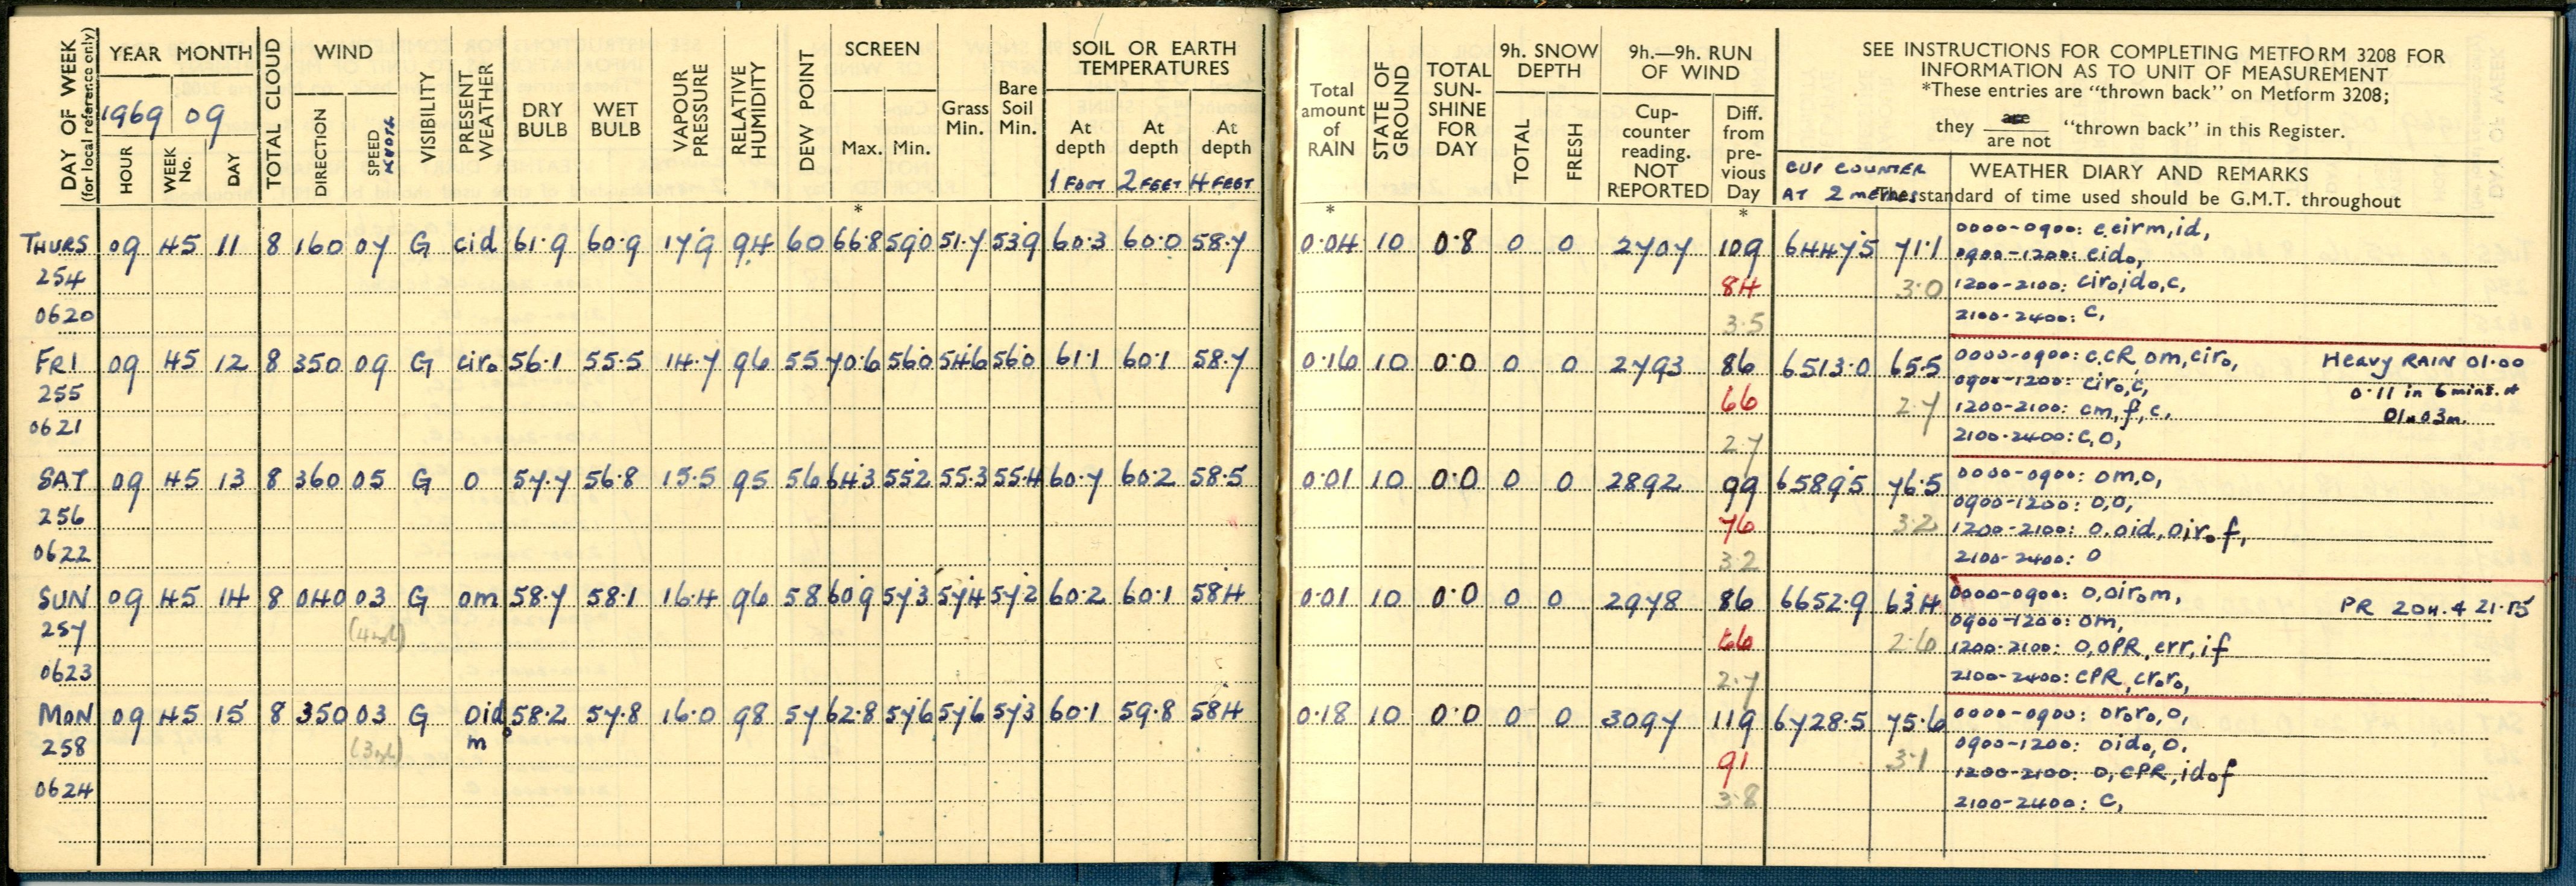 DAY OF WEEK (for local reference only)
YEAR MONTH
1969 09
HOUR WEEK No. DAY
TOTAL CLOUD
WIND
DIRECTION SPEED KNOTS
VISIBILITY
PRESENT WEATHER
DRY BULB
WET BULB
VAPOUR PRESSURE
RELATIVE HUMIDITY
DEW POINT
SCREEN
Max. Min.
Grass Min.
Bare Soil Min.
SOIL OR EARTH TEMPERATURES
At depth At depth At depth
1 FOOT 2 FEET 4 FEET
Total amount of RAIN
STATE OF GROUND
TOTAL SUN-SHINE FOR DAY
9h. SNOW DEPTH
TOTAL FRESH
9h.—9h. RUN OF WIND
Cup-counter reading. NOT REPORTED
Diff. from pre-vious Day
SEE INSTRUCTIONS FOR COMPLETING METFORM 3208 FOR
INFORMATION AS TO UNIT OF MEASUREMENT
*These entries are "thrown back" on Metform 3208;
they are / are not "thrown back" in this Register.
CUP COUNTER AT 2 metres
WEATHER DIARY AND REMARKS
The standard of time used should be G.M.T. throughout
* * *
THURS 09 45 11 8 160 07 G cid 61.9 60.9 17.9 94 60 66.8 59.0 51.7 53.9 60.3 60.0 58.7 0.04 10 0.8 0 0 2707 109 6447.5 71.1 0000-0900: c,cirm,id,
254 0900-1200: cido,
84 3.0 1200-2100: ciro,ido,c,
0620 3.5 2100-2400: C,
FRI 09 45 12 8 350 09 G ciro 56.1 55.5 14.7 96 55 70.6 56.0 54.6 56.0 61.1 60.1 58.7 0.16 10 0.0 0 0 2793 86 6513.0 65.5 0000-0900: c,cR,om,ciro, Heavy RAIN 01.00
255 0900-1200: ciro,c, 0.11 in 6 mins. at
66 2.7 1200-2100: cm,f,c, 01h 03m.
0621 2.7 2100-2400: C,O,
SAT 09 45 13 8 360 05 G O 57.7 56.8 15.5 95 56 64.3 55.2 55.3 55.4 60.7 60.2 58.5 0.01 10 0.0 0 0 2892 99 6589.5 76.5 0000-0900: om,o,
256 0900-1200: O,O,
76 3.2 1200-2100: O,oid,oirof,
0622 3.2 2100-2400: O
SUN 09 45 14 8 040 03 G om 58.7 58.1 16.4 96 58 60.9 57.3 57.4 57.2 60.2 60.1 58.4 0.01 10 0.0 0 0 2978 86 6652.9 63.4 0000-0900: O,oirom, PR 2014 21.15
257 (4mph) 0900-1200: om,
66 2.6 1200-2100: O,OPR,crr,if
0623 2.7 2100-2400: CPR,croro,
MON 09 45 15 8 350 03 G oid m 58.2 57.8 16.0 98 57 62.8 57.6 57.6 57.3 60.1 59.8 58.4 0.18 10 0.0 0 0 3097 119 6728.5 75.6 0000-0900: ororo,o,
258 (3mph) 0900-1200: oido,O,
91 3.1 1200-2100: O,CPR,idof
0624 3.8 2100-2400: C,